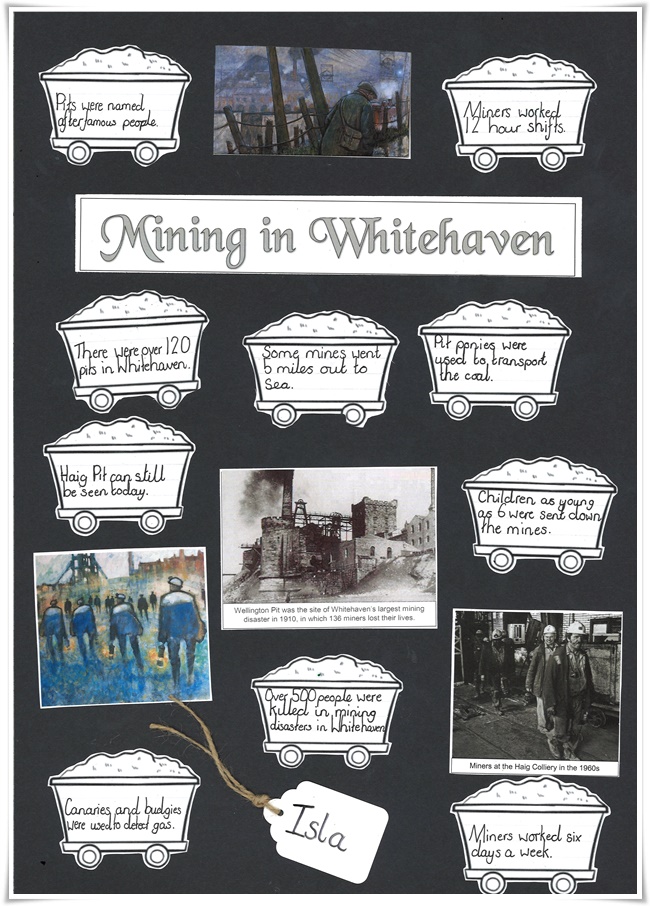 Pits were named
after famous people.
Miners worked
12 hour shifts.
Mining in Whitehaven
There were over 120
pits in Whitehaven.
Some mines went
6 miles out to
sea.
Pit ponies were
used to transport
the coal.
Haig Pit can still
be seen today.
Children as young
as 6 were sent down
the mines.
Wellington Pit was the site of Whitehaven's largest mining
disaster in 1910, in which 136 miners lost their lives.
Over 500 people were
killed in mining
disasters in Whitehaven
Miners at the Haig Colliery in the 1960s
Canaries and budgies
were used to detect gas.
Isla
Miners worked six
days a week.